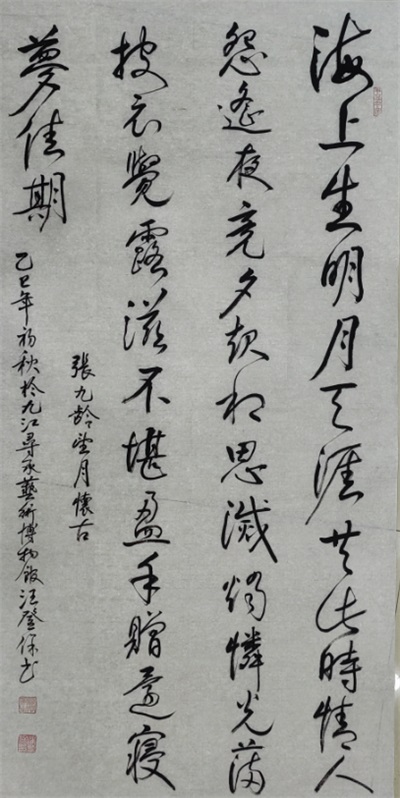 海上生明月天涯共此時情人
怨遙夜竟夕起相思滅燭憐光滿
披衣覺露滋不堪盈手贈還寢
夢佳期
張九齡望月懷古
乙巳年初秋於九江尋承藝術博物館汪登保書